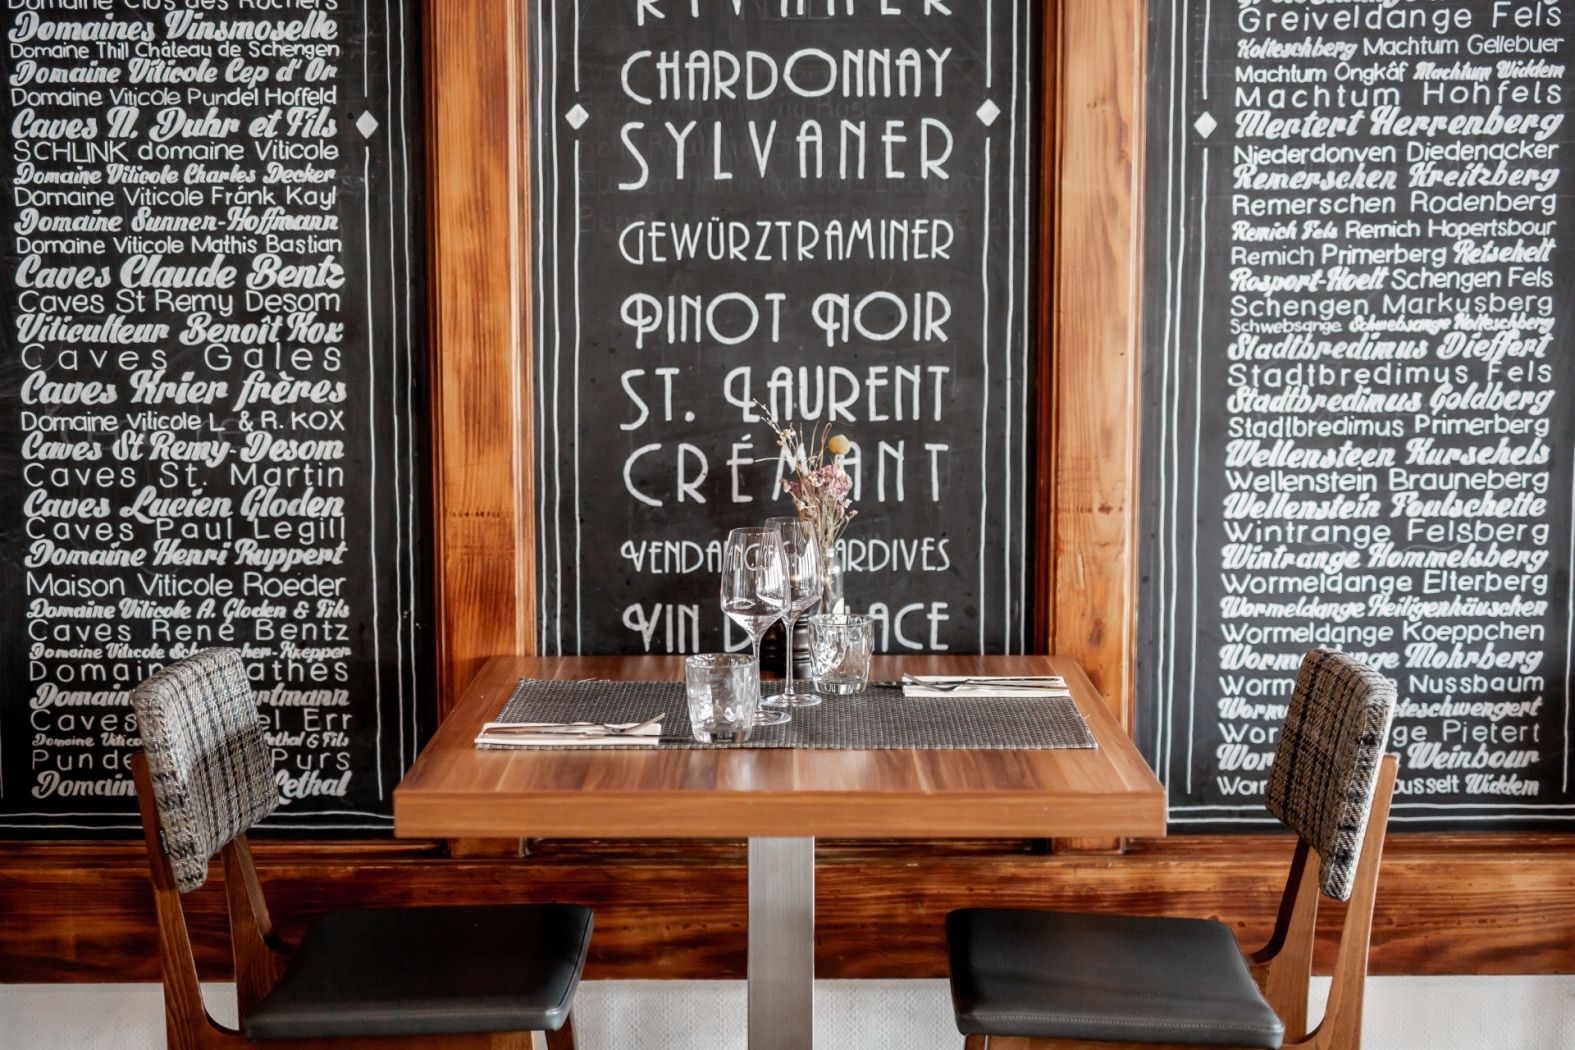 Domaine Clos des Rochers
Domaines Vinsmoselle
Domaine Thill Château de Schengen
Domaine Viticole Cep d'Or
Domaine Viticole Pundel Hoffeld
Caves N. Duhr et Fils
SCHLINK domaine Viticole
Domaine Viticole Charles Decker
Domaine Viticole Frank Kayl
Domaine Sunnen-Hoffmann
Domaine Viticole Mathis Bastian
Caves Claude Bentz
Caves St Remy Desom
Viticulteur Benoît Kox
Caves Gales
Caves Krier frères
Domaine Viticole L. & R. KOX
Caves St Remy-Desom
Caves St. Martin
Caves Lucien Gloden
Caves Paul Legill
Domaine Henri Ruppert
Maison Viticole Roeder
Domaine Viticole A. Gloden & Fils
Caves René Bentz
Domaine Viticole
Caves Err
Domaine & Fils
Purs
Lethal
RIVANER
CHARDONNAY
SYLVANER
GEWÜRZTRAMINER
PINOT NOIR
ST. LAURENT
CRÉMANT
VENDANGES TARDIVES
VIN
Greiveldange Fels
Kolteschberg Machtum Gellebuer
Machtum Ongkâf Machtum Widdem
Machtum Hohfels
Mertert Herrenberg
Niederdonven Diedenacker
Remerschen Kreitzberg
Remerschen Rodenberg
Remich Fels Remich Hopertsbour
Remich Primerberg Reetscheit
Rosport-Hoelt Schengen Fels
Schengen Markusberg
Schwebsange Schwebsange Kolteschberg
Stadtbredimus Dieffert
Stadtbredimus Fels
Stadtbredimus Goldberg
Stadtbredimus Primerberg
Wellensteen Kurschels
Wellenstein Brauneberg
Wellenstein Foulschette
Wintrange Felsberg
Wintrange Hommelsberg
Wormeldange Elterberg
Wormeldange Heiligenhäuschen
Wormeldange Koeppchen
Mohrberg
Nussbaum
Pietert
Weinbour
Widdem